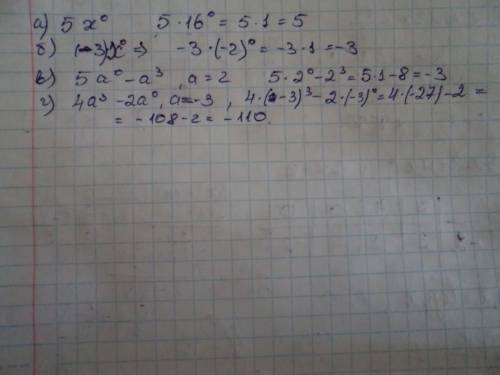 а) 5x⁰ 5·16⁰ = 5·1 = 5
б) (-3)x⁰ ⇒ -3·(-2)⁰ = -3·1 = -3
в) 5a⁰ - a³ , a = 2 5·2⁰ - 2³ = 5·1 - 8 = -3
г) 4a³ - 2a⁰, a = -3 , 4·(-3)³ - 2·(-3)⁰ = 4·(-27) - 2 =
= -108 - 2 = -110.